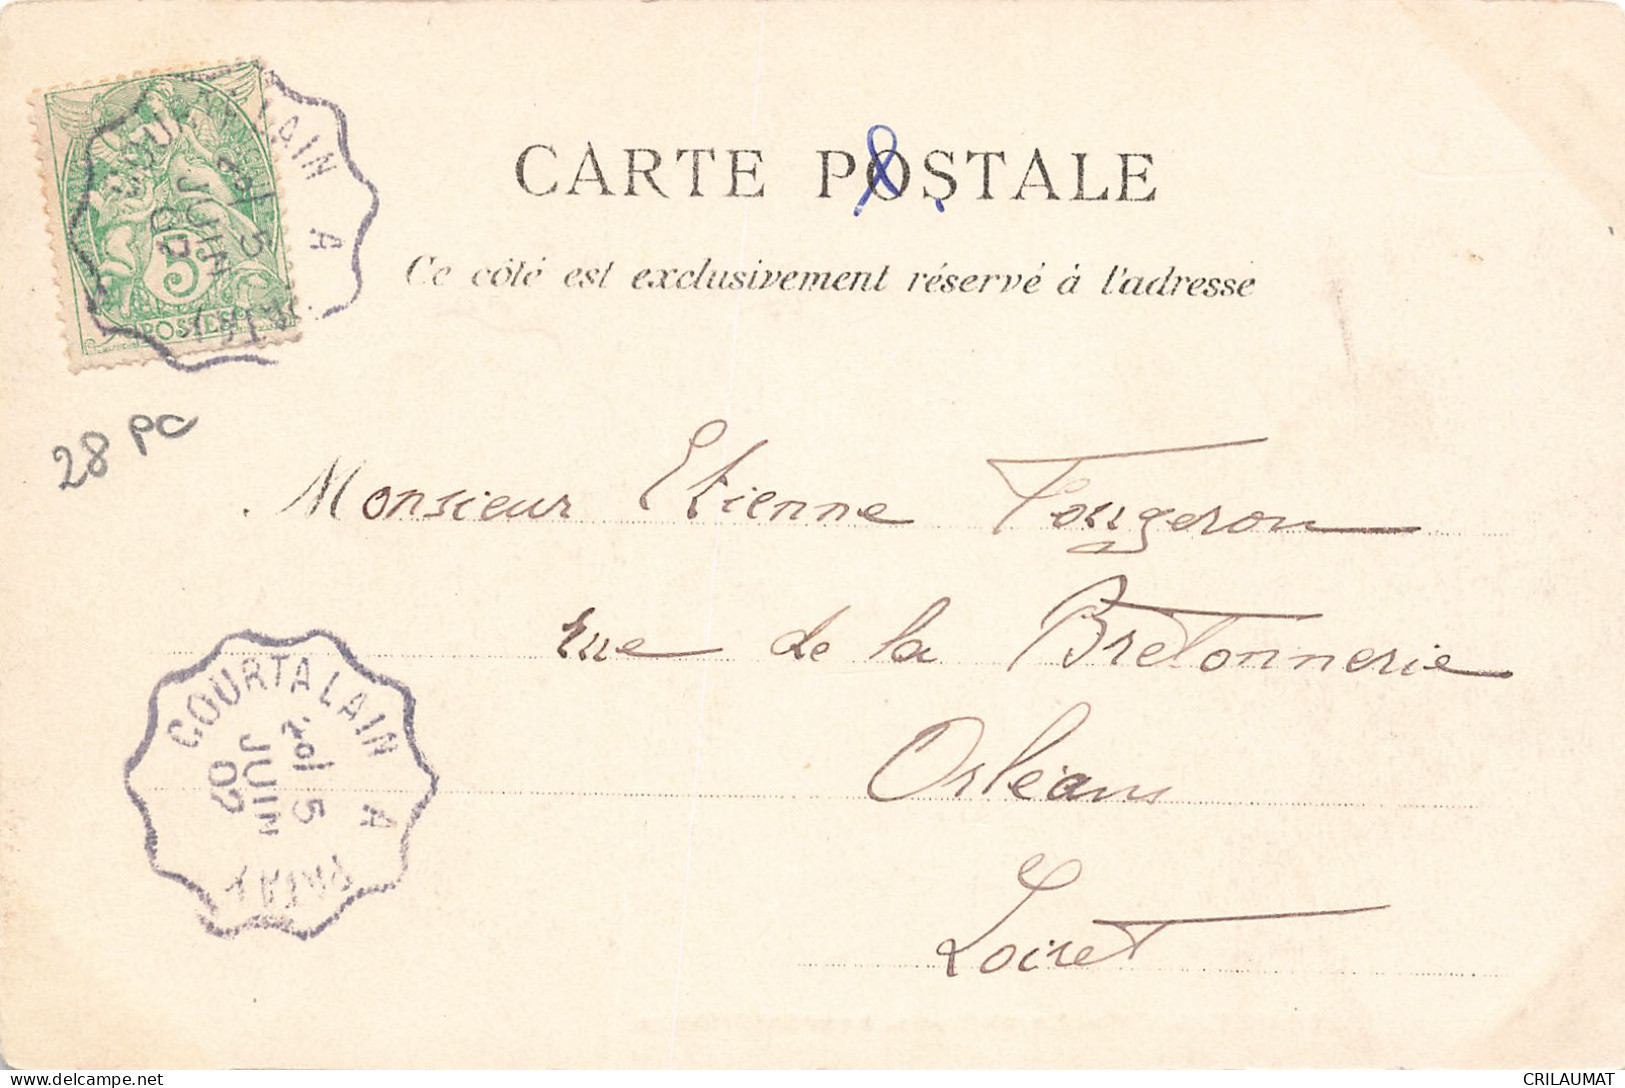 CARTE POSTALE
Ce côté est exclusivement réservé à l'adresse
5
POSTES
COURTALAIN A
5
JUIN
02
28 PC
Monsieur Etienne Fougeron
rue de la Bretonnerie
Orléans
Loiret
COURTALAIN A PATAY
5
JUIN
02
CRILAUMAT